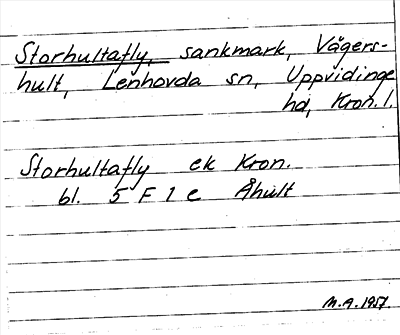 Storhultafly, sankmark, Vågers-
hult, Lenhovda sn, Uppvidinge
hd, Kron. l.
Storhultafly ek Kron.
bl. 5 F 1 e Åhult
M.A. 1957.